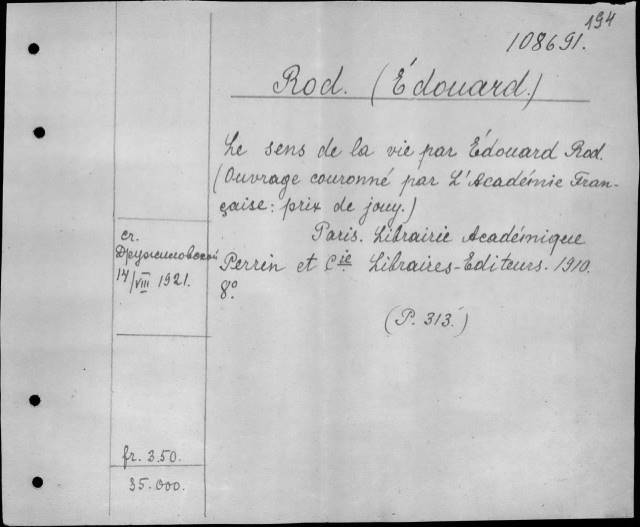 194
108691.
Rod. (Édouard.)
Le sens de la vie par Édouard Rod.
(Ouvrage couronné par L'Académie Fran-
çaise: prix de jouy.)
Paris. Librairie Académique
Perrin et Cie Libraires-Editeurs. 1910.
8°.
(P. 313.)
ст.
Дружиловской
14/VIII 1921.
fr. 3.50.
35.000.